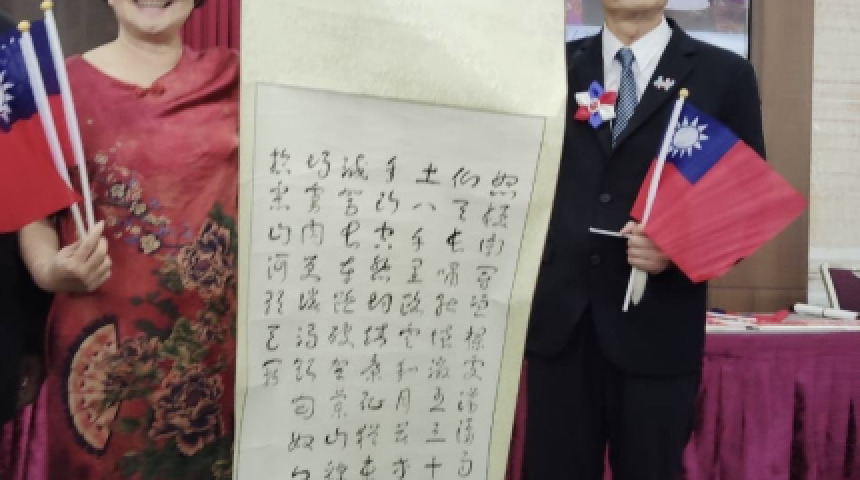 怒髮衝冠憑欄處瀟瀟雨
仰天長嘯壯懷激烈三十
土八千里路雲和月莫等
年頭空悲切靖康恥猶未
滅駕長車踏破賀蘭山缺
胡虜肉笑談渴飲匈奴血
拾舊山河朝天闕